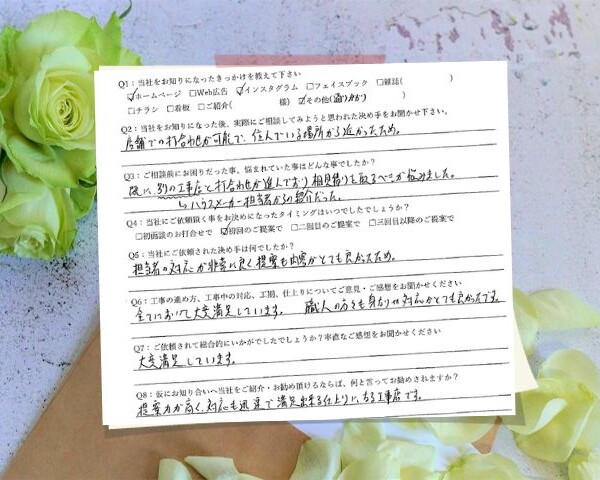 Q1：当社をお知りになったきっかけを教えて下さい
☑ホームページ □Web広告 ☑インスタグラム □フェイスブック □雑誌(　　)
□チラシ □看板 □ご紹介(　　様) ☑その他(通りがかり)
Q2：当社をお知りになった後、実際にご相談してみようと思われた決め手をお聞かせ下さい。
店舗での打合わせが可能で、住んでいる場所から近かったため。
Q3：ご相談前にお困りだった事、悩まれていた事はどんな事でしたか？
既に、別の工事店と打合わせが進んでおり相見積りを取るべきか悩みました。
↳ハウスメーカー担当者からの紹介だった。
Q4：当社にご依頼頂く事をお決めになったタイミングはいつでしたでしょうか？
□初面談のお打合せで ☑初回のご提案で □二回目のご提案で □三回目以降のご提案で
Q5：当社にご依頼された決め手は何でしたか？
担当者の対応が非常に良く提案も内容がとても良かったため。
Q6：工事の進め方、工事中の対応、工期、仕上りについてご意見・ご感想をお聞かせください
全てにおいて大変満足しています。 職人の方々も身なりや対応がとても良かったです。
Q7：ご依頼されて総合的にいかがでしたでしょうか？率直なご感想をお聞かせください
大変満足しています。
Q8：仮にお知り合いへ当社をご紹介・お勧め頂けるならば、何と言ってお勧めされますか？
提案力が高く、対応も迅速で満足出来る仕上りになる工事店です。